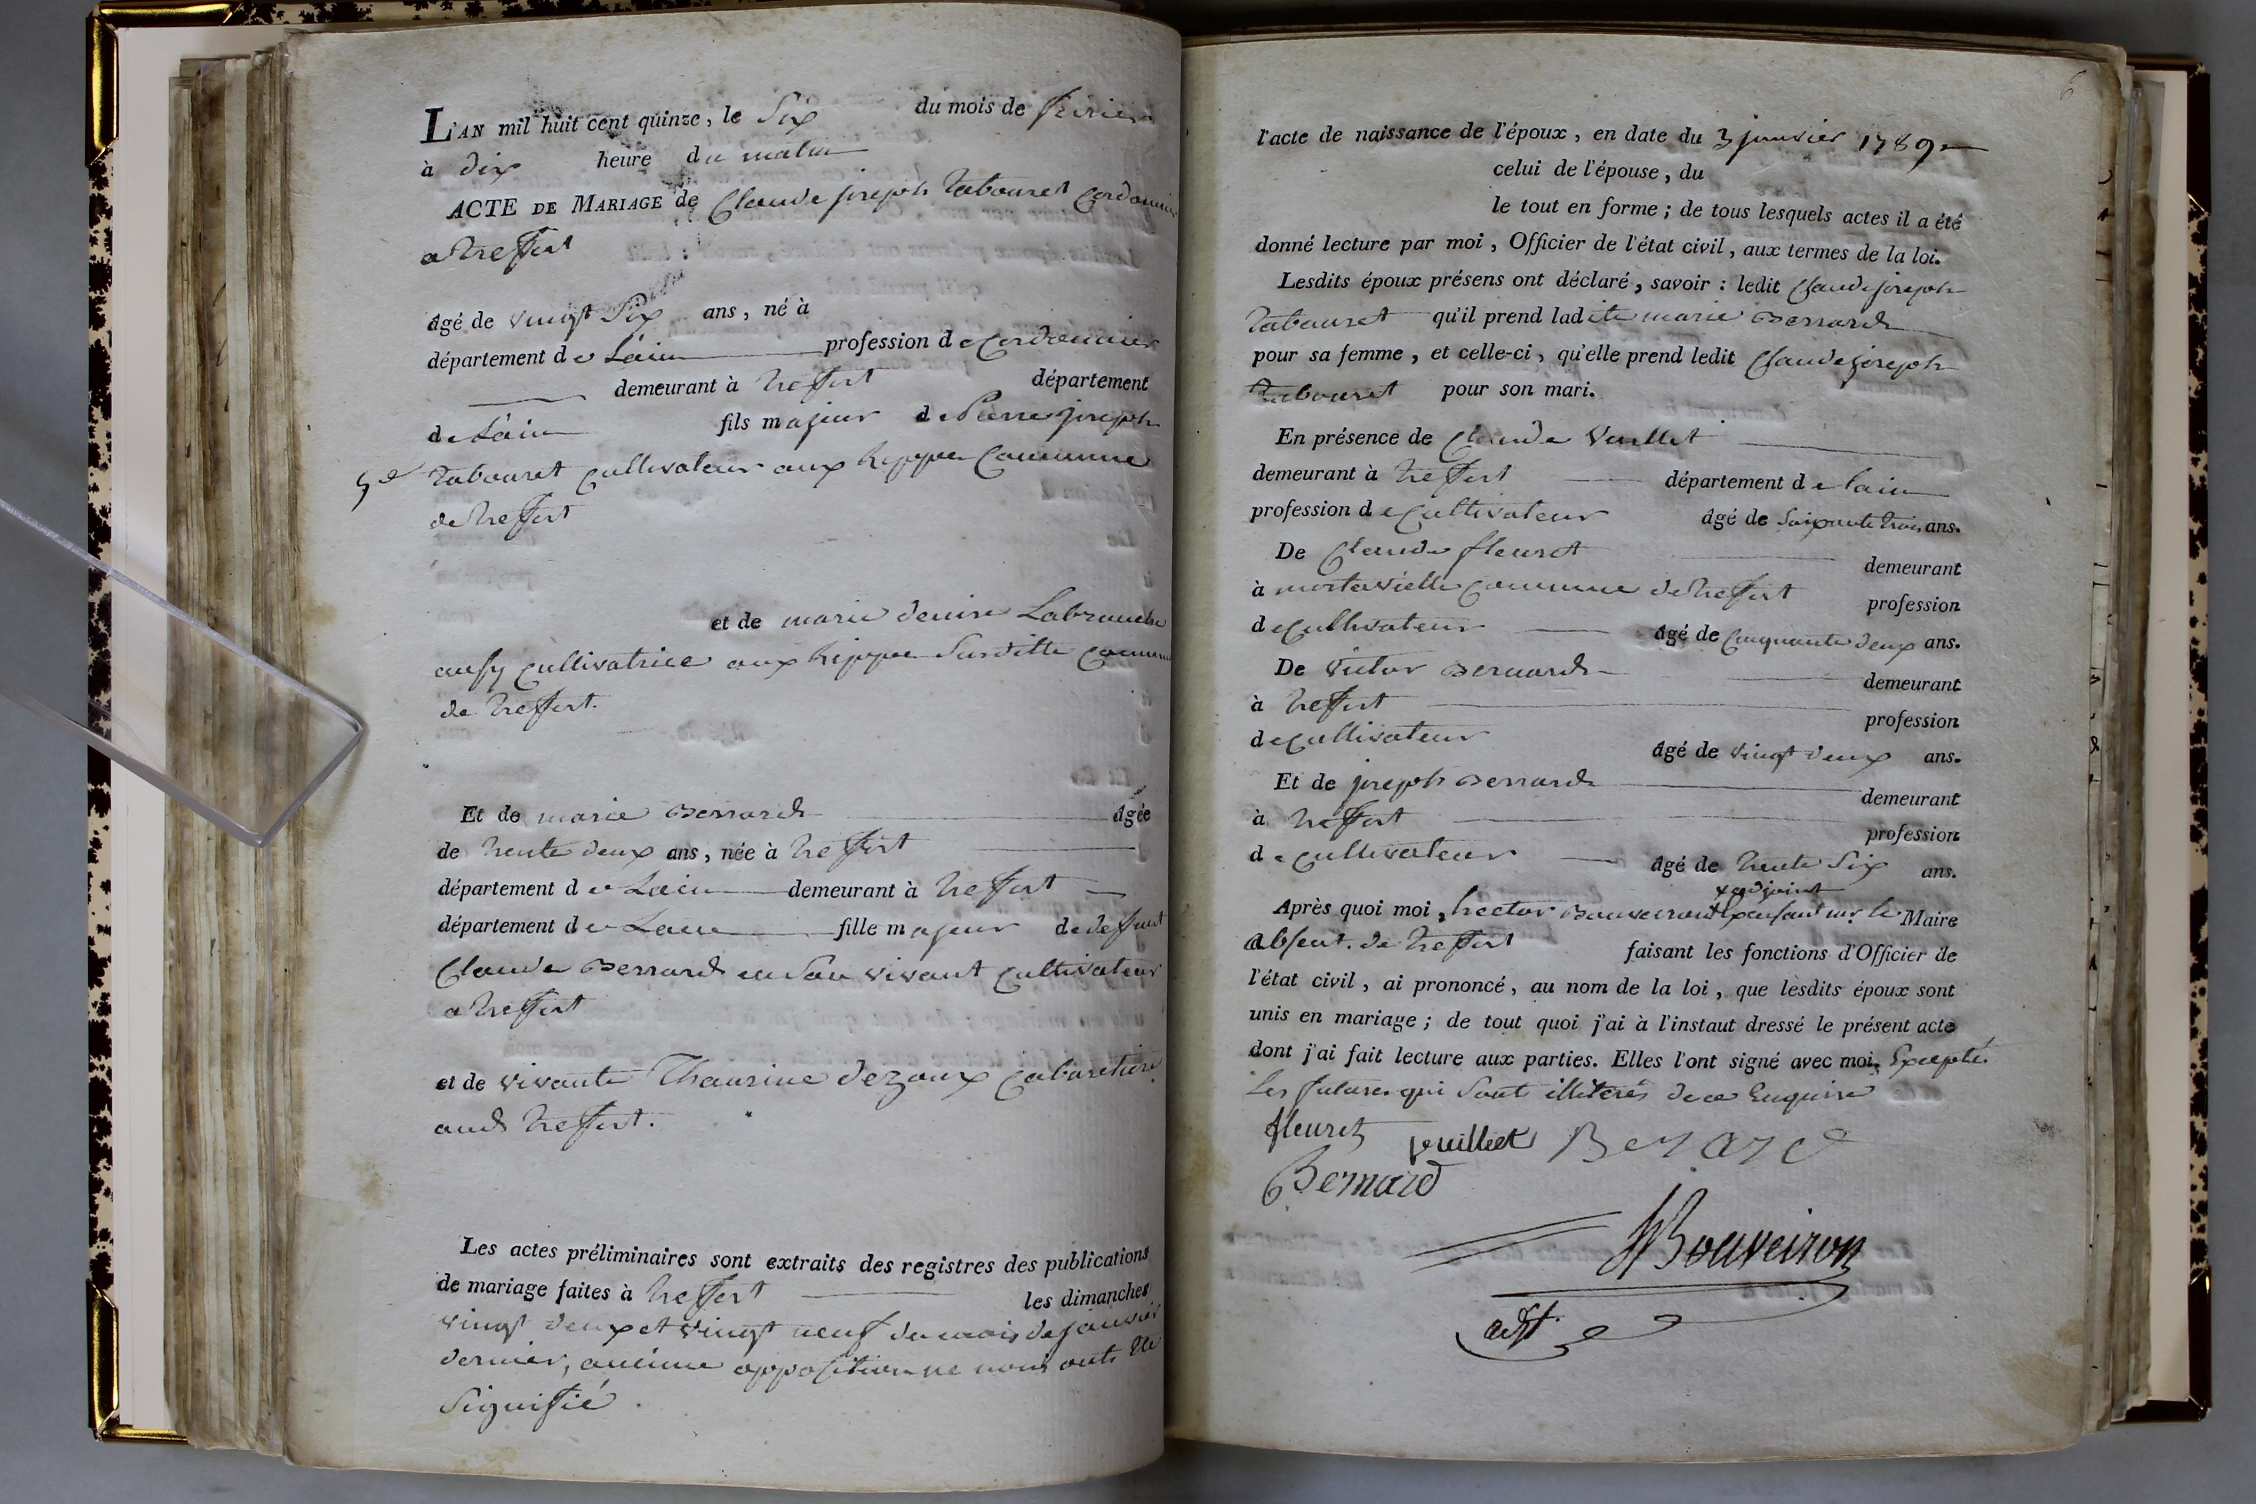 L'AN mil huit cent quinze, le Six du mois de fevrier
à dix heure du matin
ACTE DE MARIAGE de Claude joseph Tabouret Cordonnier
a treffort
âgé de vingt Six ans, né à
département de Lain profession de Cordonnier
demeurant à treffort département
de Lain fils majeur de Pierre joseph
5e
Tabouret cultivateur aux hippes Commune
de treffort
et de marie denise Labranche
ausy cultivatrice aux hippes Surditte Commune
de treffort.
Et de marie Bernard âgée
de trente deux ans, née à treffort
département de Lain demeurant à treffort
département de Lain fille majeur de deffunt
Claude Bernard en son vivant cultivateur
a treffort
et de vivante Thaurine dezaux cabaretiere
aud treffort.
Les actes préliminaires sont extraits des registres des publications
de mariage faites à treffort les dimanches
vingt deux et vingt neuf du mois de janvier
dernier, aucune opposition ne nous onts été
Signifié
6
l'acte de naissance de l'époux, en date du 3 janvier 1789
celui de l'épouse, du
le tout en forme; de tous lesquels actes il a été
donné lecture par moi, Officier de l'état civil, aux termes de la loi.
Lesdits époux présens ont déclaré, savoir: ledit Claude joseph
Tabouret qu'il prend ladite marie Bernard
pour sa femme, et celle-ci, qu'elle prend ledit Claude joseph
Tabouret pour son mari.
En présence de Claude Vuillet
demeurant à treffort département de lain
profession de Cultivateur âgé de Soixante trois ans.
De Claude fleuret demeurant
à montevielle Commune de treffort profession
de Cultivateur âgé de Cinquante deux ans.
De Victor Bernard demeurant
à treffort profession
de Cultivateur âgé de vingt deux ans.
Et de joseph Bernard demeurant
à treffort profession
de Cultivateur âgé de trente Six ans.
x adjoint
Après quoi moi, hector Bouveiron x pensant mr le Maire
absent. de treffort faisant les fonctions d'Officier de
l'état civil, ai prononcé, au nom de la loi, que lesdits époux sont
unis en mariage; de tout quoi j'ai à l'instaut dressé le présent acte
dont j'ai fait lecture aux parties. Elles l'ont signé avec moi. Excepté
Les futures qui Sonts illiterés de ce Enquire
fleuret vuilliet Berard
Bernard
HBouveiron
adjt